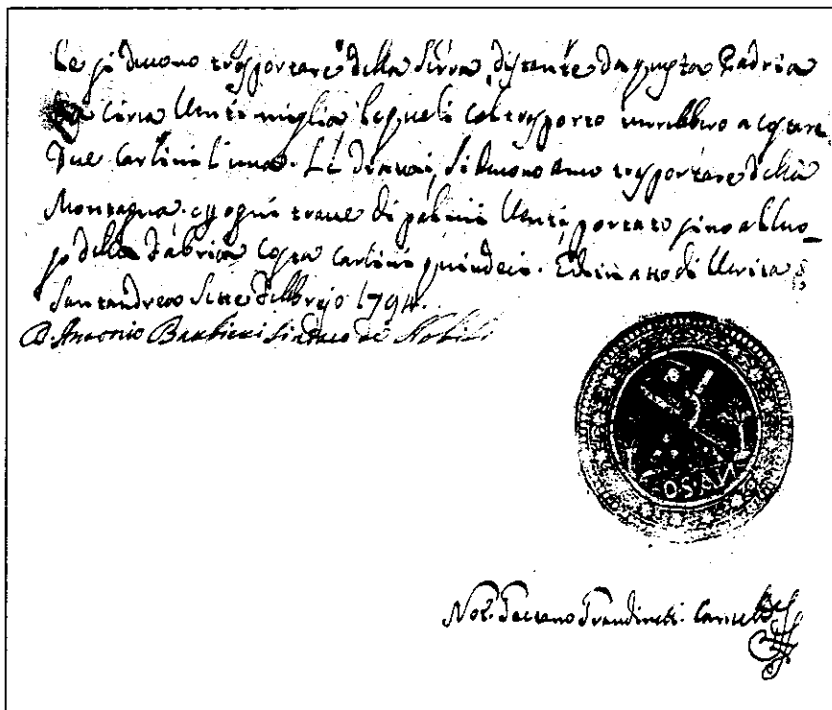 le si devono trasportare della Serra, distante da questa Padria
circa venti miglia, le quali col trasporto verrebbero a costare
due carlini l'una. Le travi, si devono anco trasportare della
Montagna, ed ogni trave di palmi venti, portato sino al luo_
go della fabrica costa carlini quindeci. Ed in atto di verità
Santandrea Sette 1794.
D. Antonio Barbieri Sindaco de Nobili
Not. Gaetano Cancell.